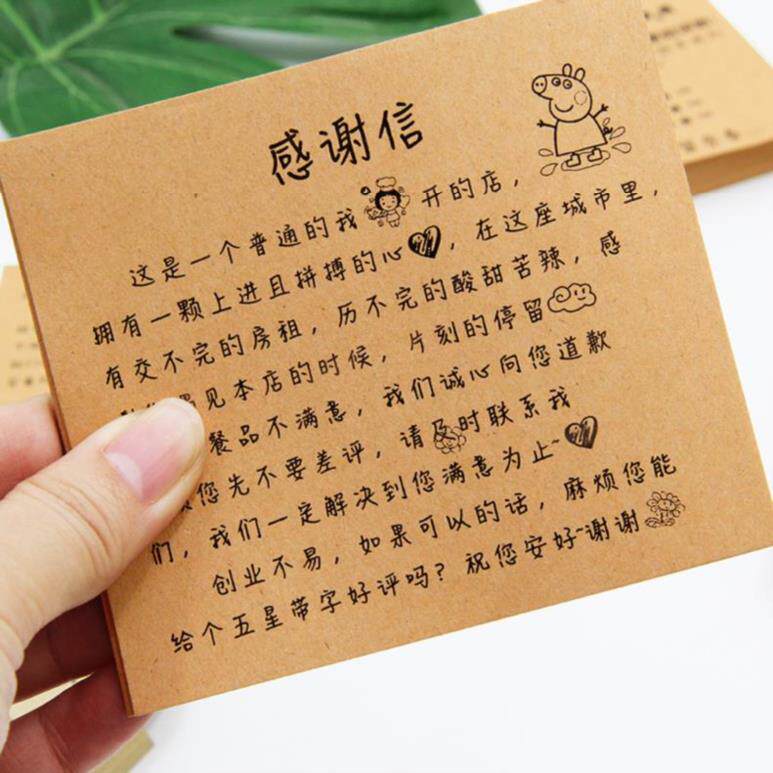 感谢信
这是一个普通的我开的店，
拥有一颗上进且拼搏的心，在这座城市里，
有交不完的房租，历不完的酸甜苦辣，感
遇见本店的时候，片刻的停留
餐品不满意，我们诚心向您道歉
您先不要差评，请及时联系我
们，我们一定解决到您满意为止~
创业不易，如果可以的话，麻烦您能
给个五星带字好评吗？祝您安好~谢谢